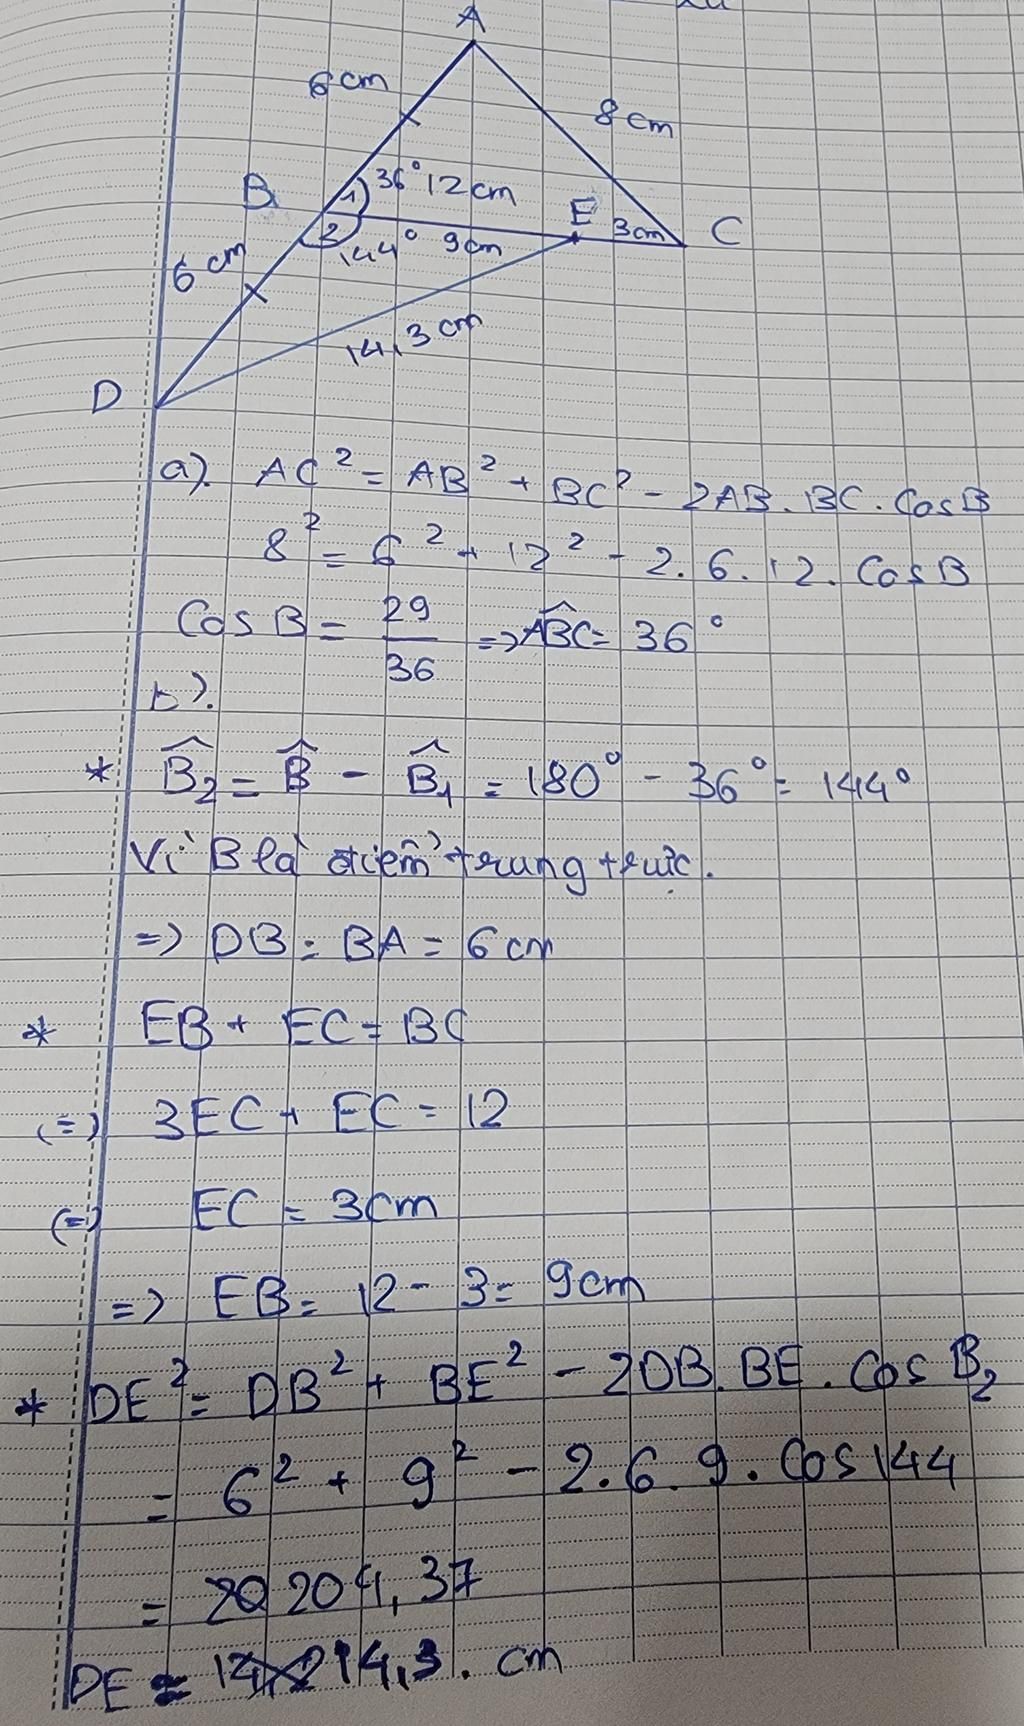 A
6cm
8cm
B 1 36° 12cm E 3cm C
2 144° 9cm
6 cm
14,3 cm
D
a). AC² = AB² + BC² - 2AB. BC. CosB
8² = 6² + 12² - 2. 6. 12. CosB
CosB = 29/36 => ABC = 36°
b).
* B₂ = B - B₁ = 180° - 36° = 144°
Vì B là điểm trung trực.
=> DB = BA = 6cm
* EB + EC = BC
(=) 3EC + EC = 12
(=) EC = 3cm
=> EB = 12 - 3 = 9cm
* DE² = DB² + BE² - 2DB. BE. Cos B₂
= 6² + 9² - 2.6.9. Cos144
= 204,37
DE ≈ 14,3. cm